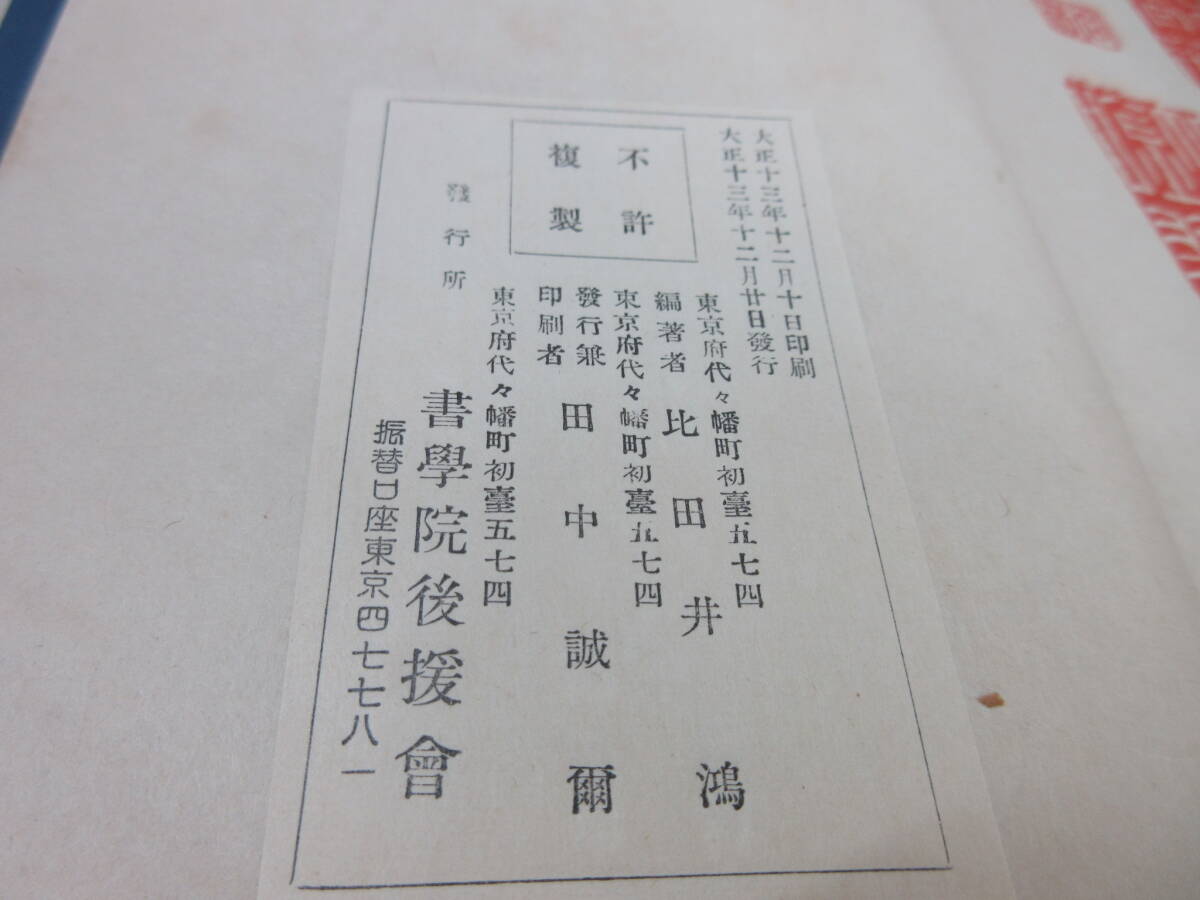 大正十三年十二月十日印刷
大正十三年十二月廿日發行
不許
複製
東京府代々幡町初臺五七四
編著者 比田井鴻
東京府代々幡町初臺五七四
發行兼
印刷者 田中誠爾
東京府代々幡町初臺五七四
發行所 書學院後援會
振替口座東京四七七八一